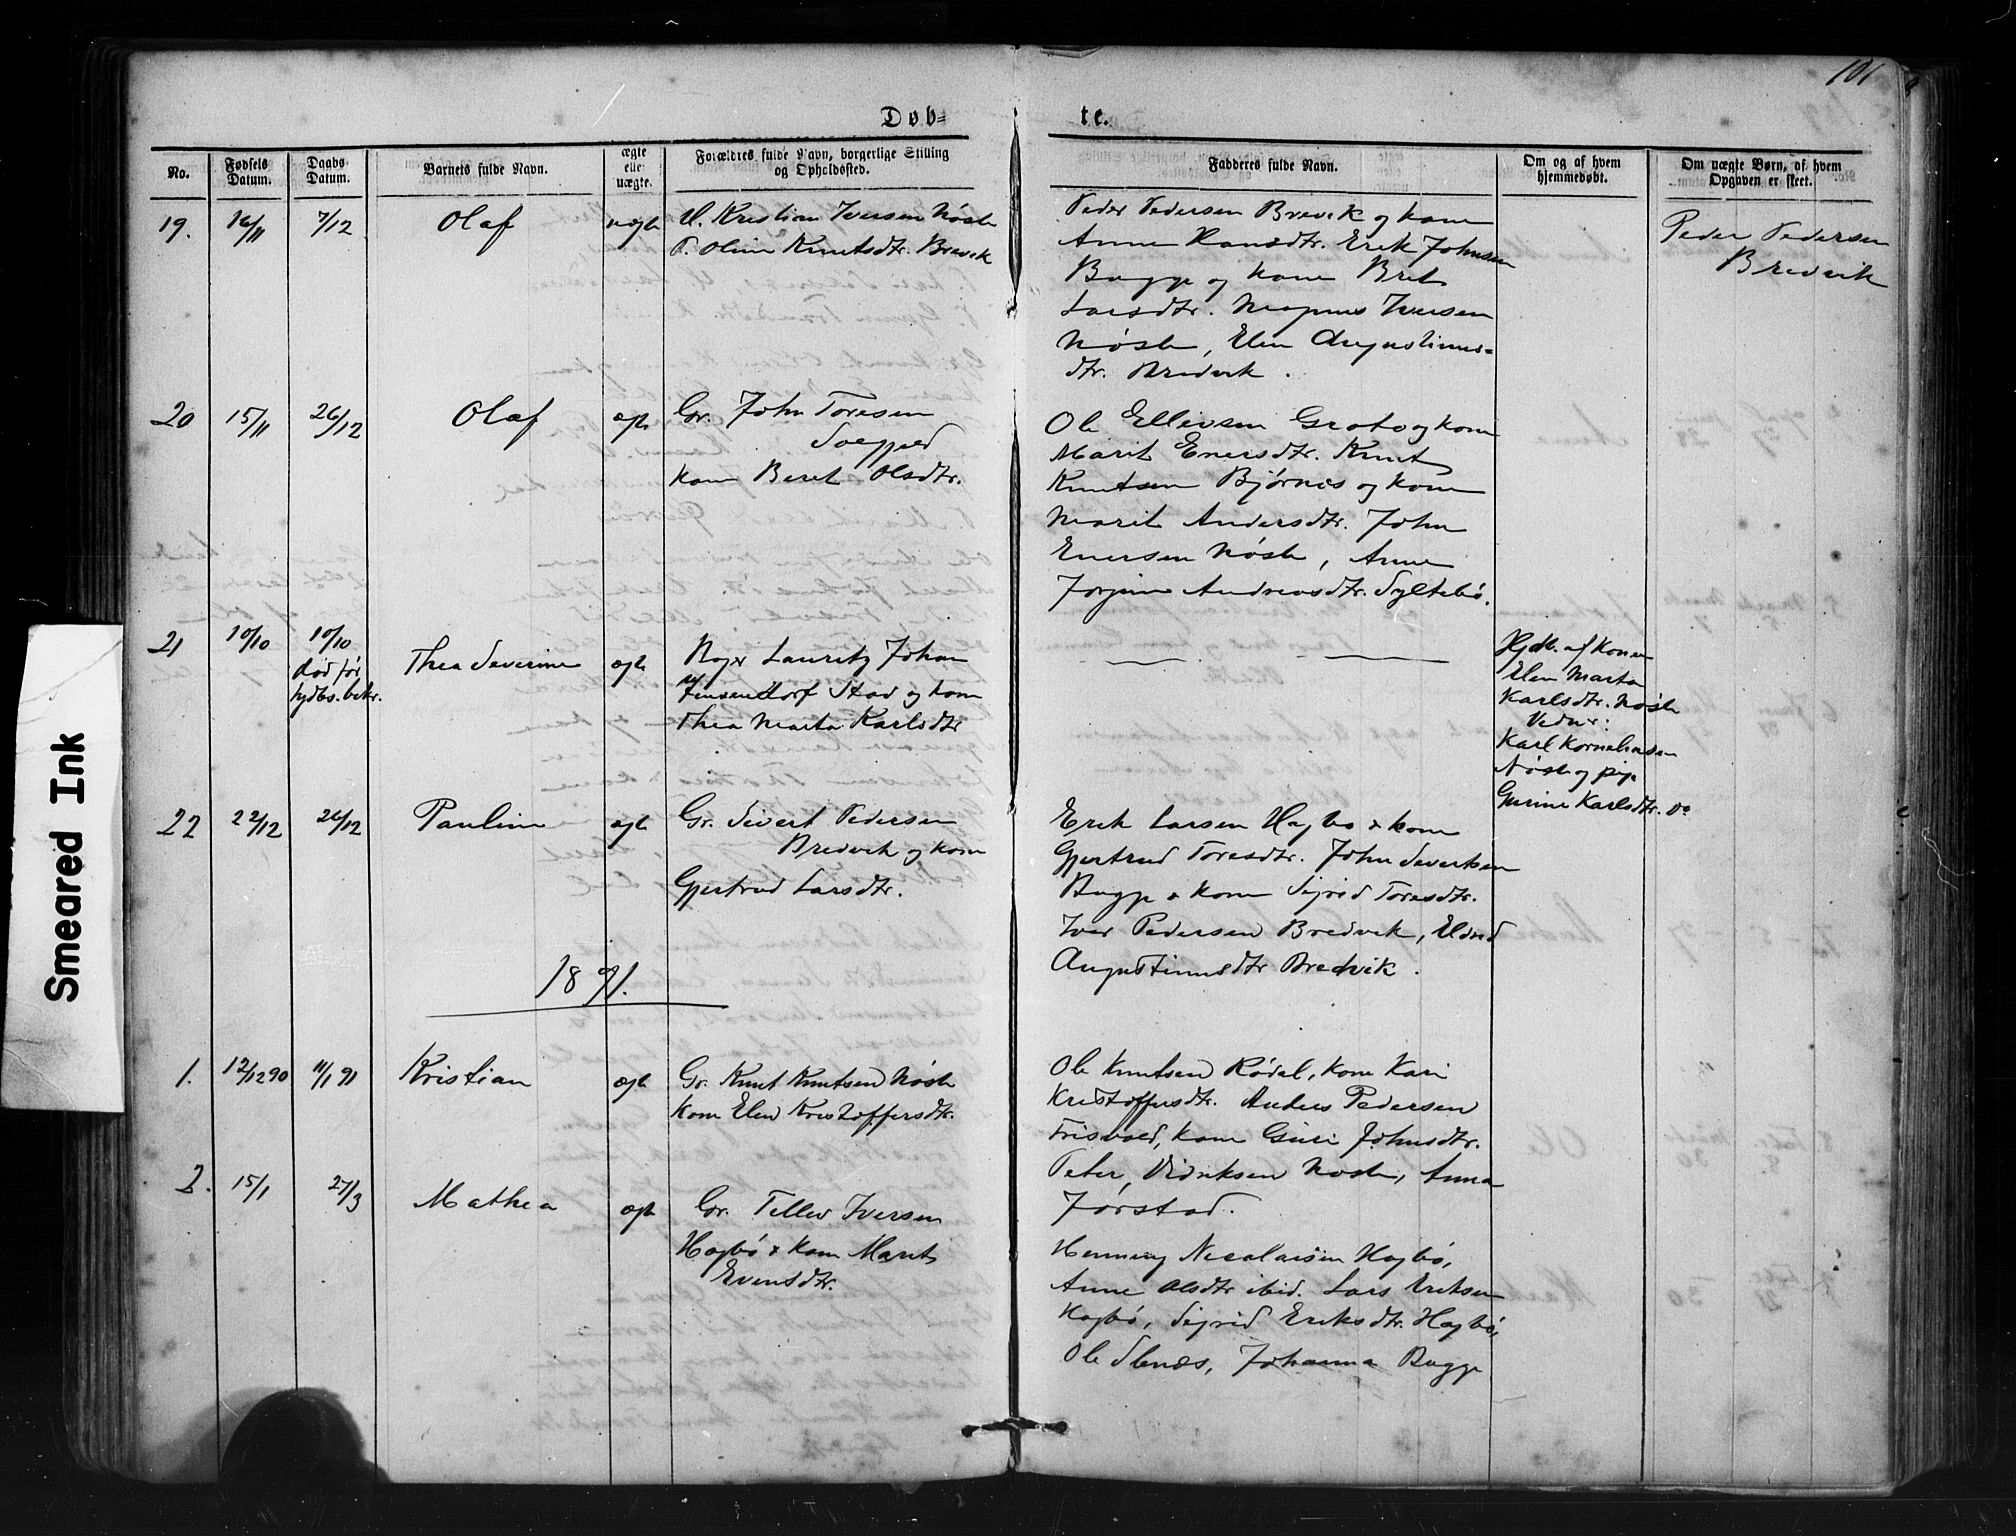 101
Døb=
te.
No.
Fødsels
Datum.
Daabs
Datum.
Barnets fulde Navn.
ægte
eller
uægte.
Forældres fulde Navn, borgerlige Stilling
og Opholdssted.
Faddere​s fulde Navn.
Om og af hvem
hjemmedøbt.
Om uægte Børn, af hvem
Opgaven er skeet.
19. 16/11 7/12 Olaf uægte U. Kristian Iversen Nøste
P. Oline Knutsdtr. Brevik
Peder Pedersen Brevik og kone
Anne Hansdtr. Erik Johnsen
Bugge og kone Brit
Larsdtr. Magnus Iversen
Nøste, Elen Augustinus=
dtr. Bredvik.
Peder Pedersen
Bredvik
20 15/11 26/12 Olaf ægte Gr. John Toresen
kone Beret Olsdtr.
Ole Ellevsen Grote og kone
Marit Enersdtr. Knut
Knutsen Bjørnes og kone
Marit Andersdtr. John
Enersen Nøste, Anne
Jorgine Andreasdtr. Syltebø.
21 10/10 10/10
død før
hjdbs. bekr.
Thea Severine ægte Lauritz Johan
Jensen Stad og kone
Thea Marta Karlsdtr
Hjdb. af konen
Elen Marta
Karlsdtr. Nøste
Vidner:
Karl Korneliusen
Nøste og pige
Gurine Karlsdtr. Do
22 22/12 26/12 Pauline ægte Gr. Sivert Pedersen
Bredvik og kone
Gjertrud Larsdtr.
Erik Larsen Hagbø & kone
Gjertrud Toresdtr. John Sivertsen
Bugge & kone Sigrid Toresdtr.
Iver Pedersen Bredvik, Eldrid
Augustinusdtr Bredvik.
1891.
1. 12/12 90 11/1 91 Kristian ægte Gr. Knut Knutsen Nøste
kone Elen Kristoffersdtr.
Ole Knutsen Rødal, kone Kari
Kristoffersdtr. Anders Pedersen
Frisvold, kone Guri Johnsdtr.
Peter Didriksen Nøste, Anna
Jørstad.
2. 15/1 27/3 Mathea ægte Gr. Tellev Iversen
Hagbø & kone Marit
Evensdtr.
Henning Nicolaisen Hagbø,
Anne Olsdtr ibid. Lars Eriksen
Hagbø, Sigrid Eriksdtr. Hagbø,
Ole Stenes, Johanna Bugge
Smeared Ink